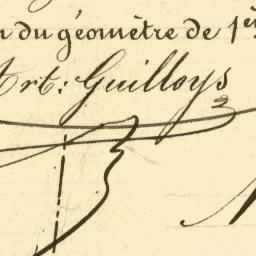 du géomètre de 1er
Art: Guilloys